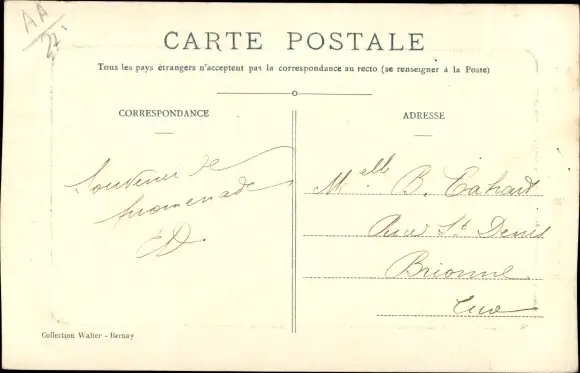 AA
27.
CARTE POSTALE
Tous les pays étrangers n'acceptent pas la correspondance au recto (se renseigner à la Poste)
CORRESPONDANCE
ADRESSE
Souvenir de
promenade
Melle B. Cahart
Rue St Denis
Brionne
Eure
Collection Walter - Bernay